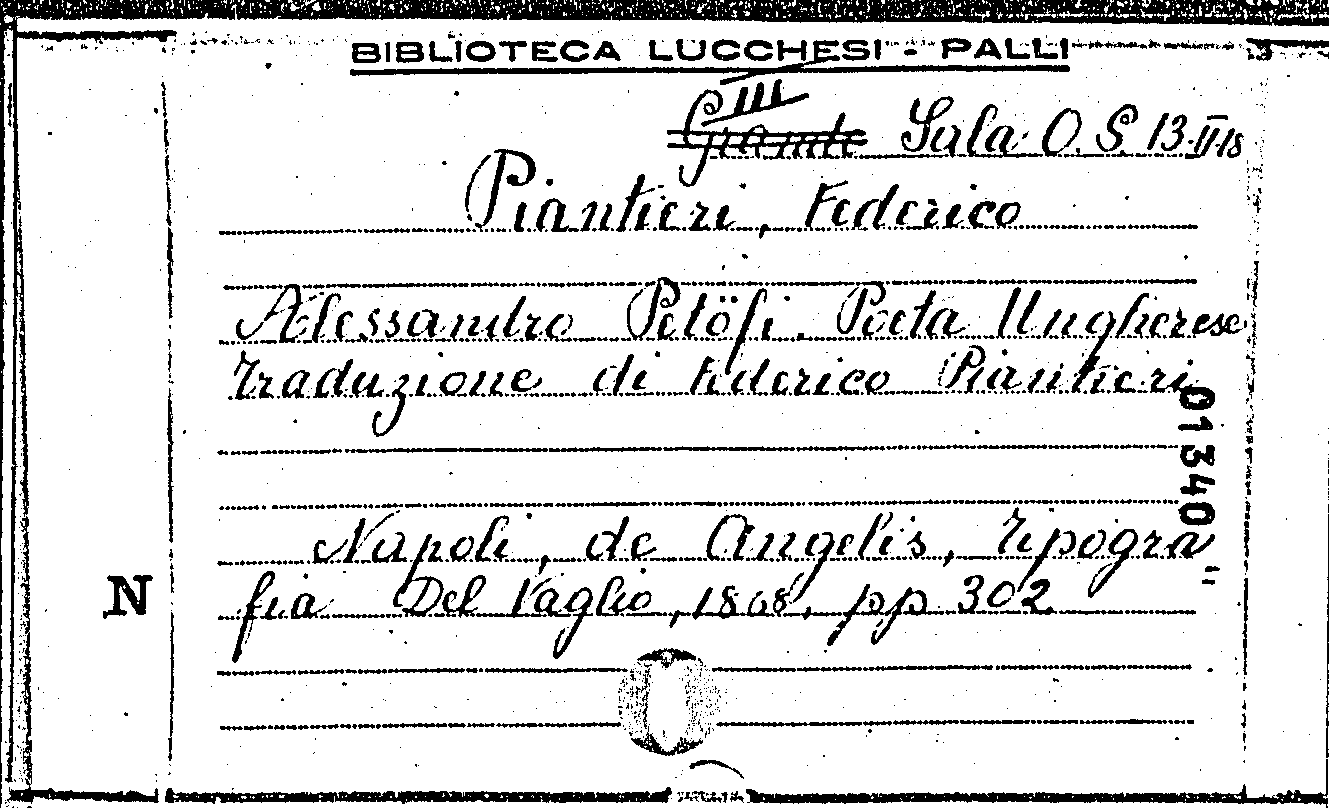 BIBLIOTECA LUCCHESI - PALLI
III
Grande Sala O. S. 13-II-18
Piantieri, Federico
Alessandro Petöfi. Poeta Ungherese
Traduzione di Federico Piantieri
01340
Napoli, de Angelis, Tipogra=
N
fia Del Vaglio, 1868. pp 302